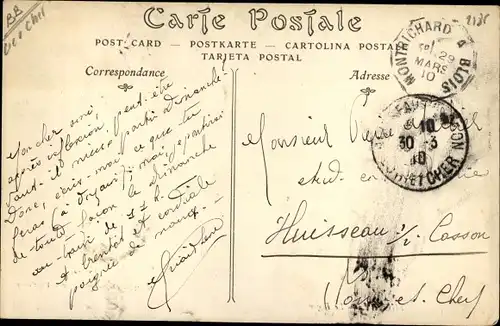 BB
2135
Carte Postale
POST CARD — POSTKARTE — CARTOLINA POSTALE
TARJETA POSTAL
Correspondance
Adresse
MONTRICHARD A BLOIS
29
MARS
10
10
30 - 3
10
LOIR ET CHER
Mon cher ami,
après réflexion, peut-être
vaut-il mieux partir dimanche.
Donc, écris-moi ce que tu
feras
de toute façon le dimanche
au train de
A bientôt et cordiale
poignée de mains.
Monsieur Pierre
Huisseau s/s Cosson
Loir et Cher